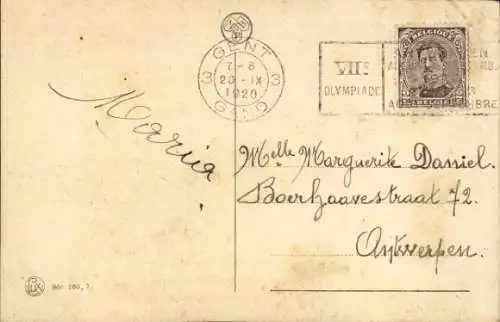 GENT
3 3
7-8
20-IX
1920
GAND
VIIe
OLYMPIADE
BELGIQUE
Maria
Melle Marguerite Daniel.
Boerhaavestraat 72.
Antwerpen.
Sér 160, 7.